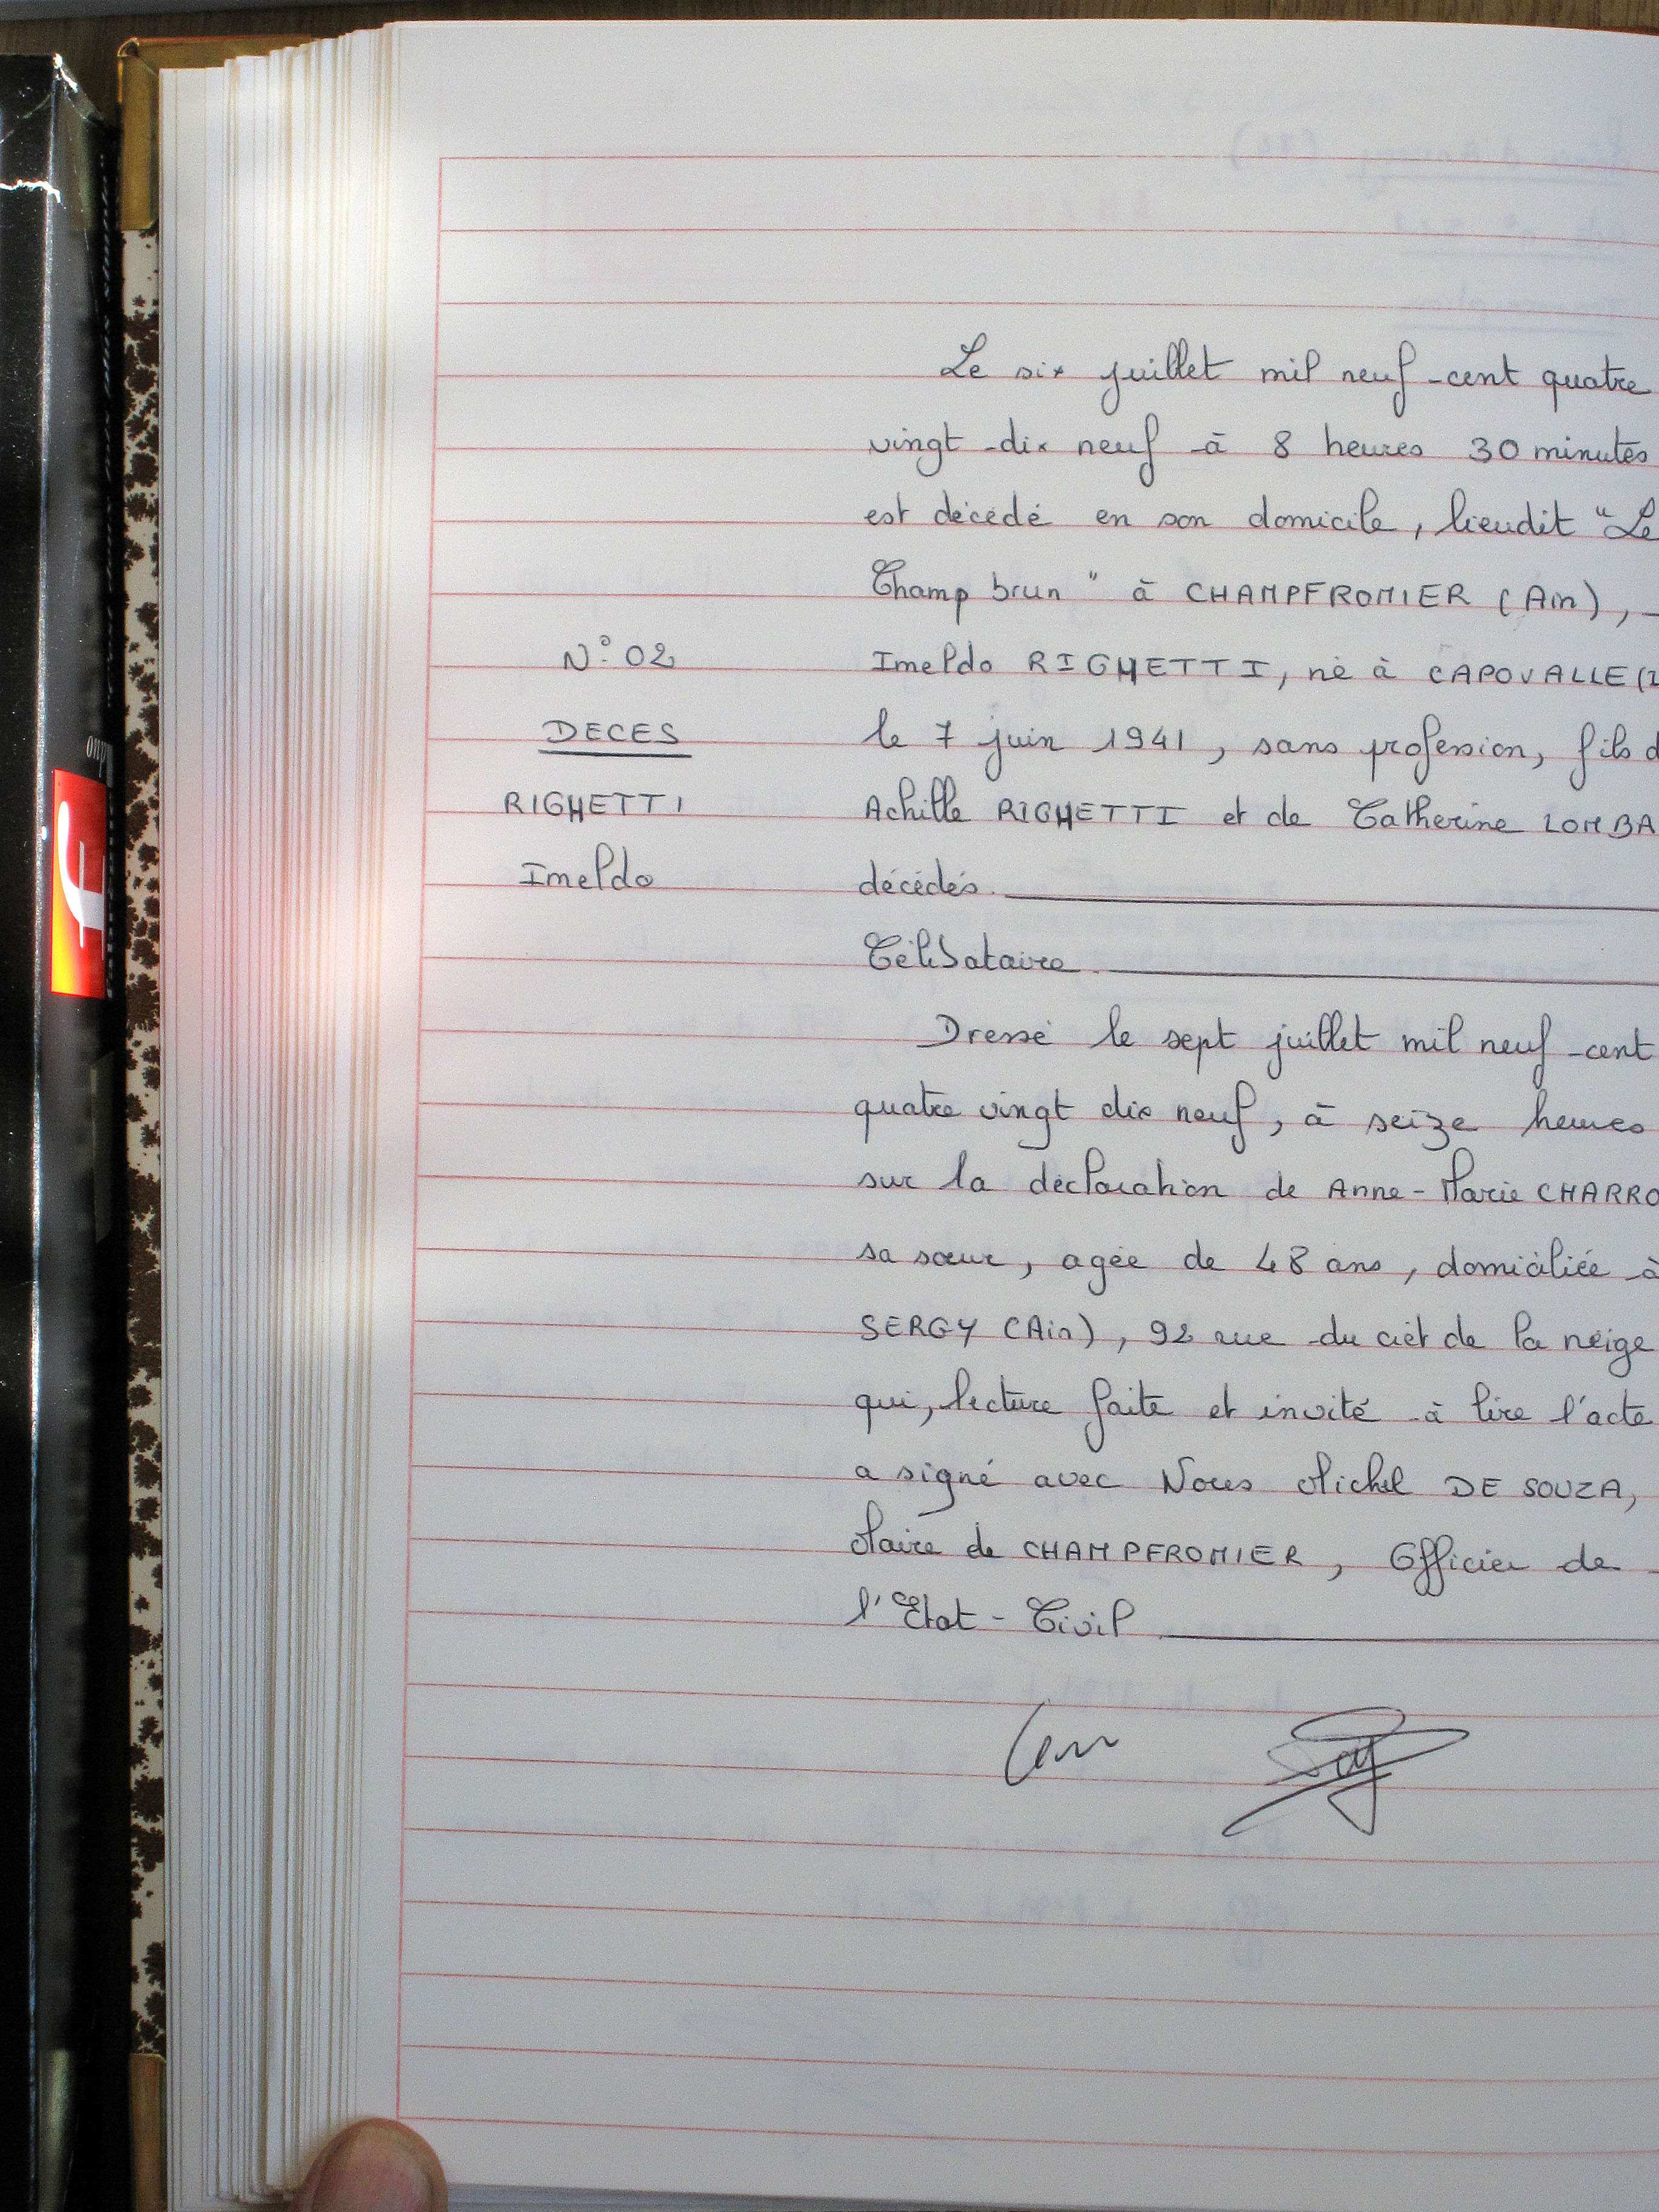 Le six juillet mil neuf-cent quatre
vingt-dix neuf à 8 heures 30 minutes
est décédé en son domicile, lieudit "Le
Champ brun" à CHAMPFROMIER (Ain),
N° 02
Imeldo RIGHETTI, né à CAPOVALLE (I
DECES
le 7 juin 1941, sans profession, fils d
RIGHETTI
Achille RIGHETTI et de Catherine LOMBA
Imeldo
décédés.
Célibataire.
Dressé le sept juillet mil neuf-cent
quatre vingt dix neuf, à seize heures
sur la déclaration de Anne-Marie CHARRO
sa sœur, agée de 48 ans, domiciliée à
SERGY (Ain), 92 rue du crêt de la neige
qui, lecture faite et invité à lire l'acte
a signé avec Nous Michel DE SOUZA,
Maire de CHAMPFROMIER, Officier de
l'Etat-Civil.